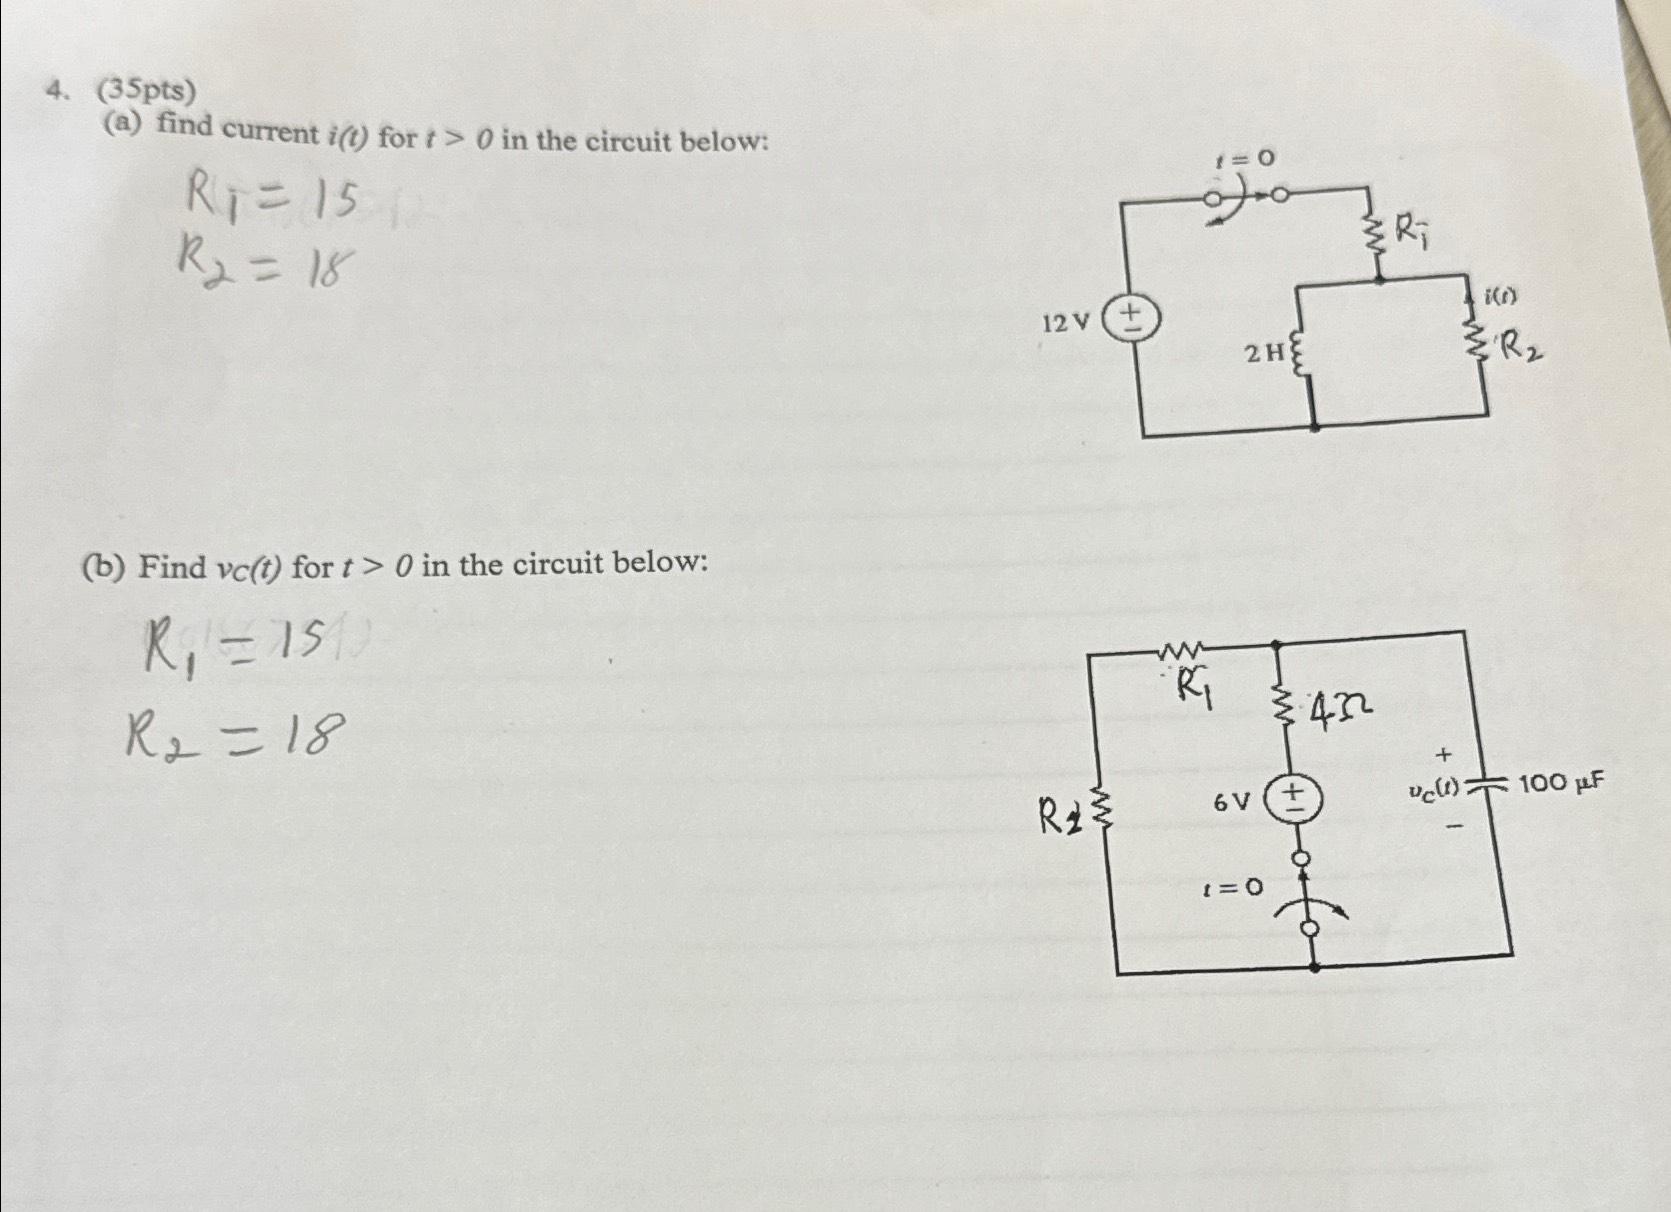 4. (35pts)
(a) find current i(t) for t > 0 in the circuit below:
R1 = 15
R2 = 18
t = 0
R1
12 V
+
−
2 H
i(t)
R2
(b) Find vC(t) for t > 0 in the circuit below:
R1 = 15
R2 = 18
R1
4Ω
R2
6 V
+
−
+
vC(t)
−
100 μF
t = 0